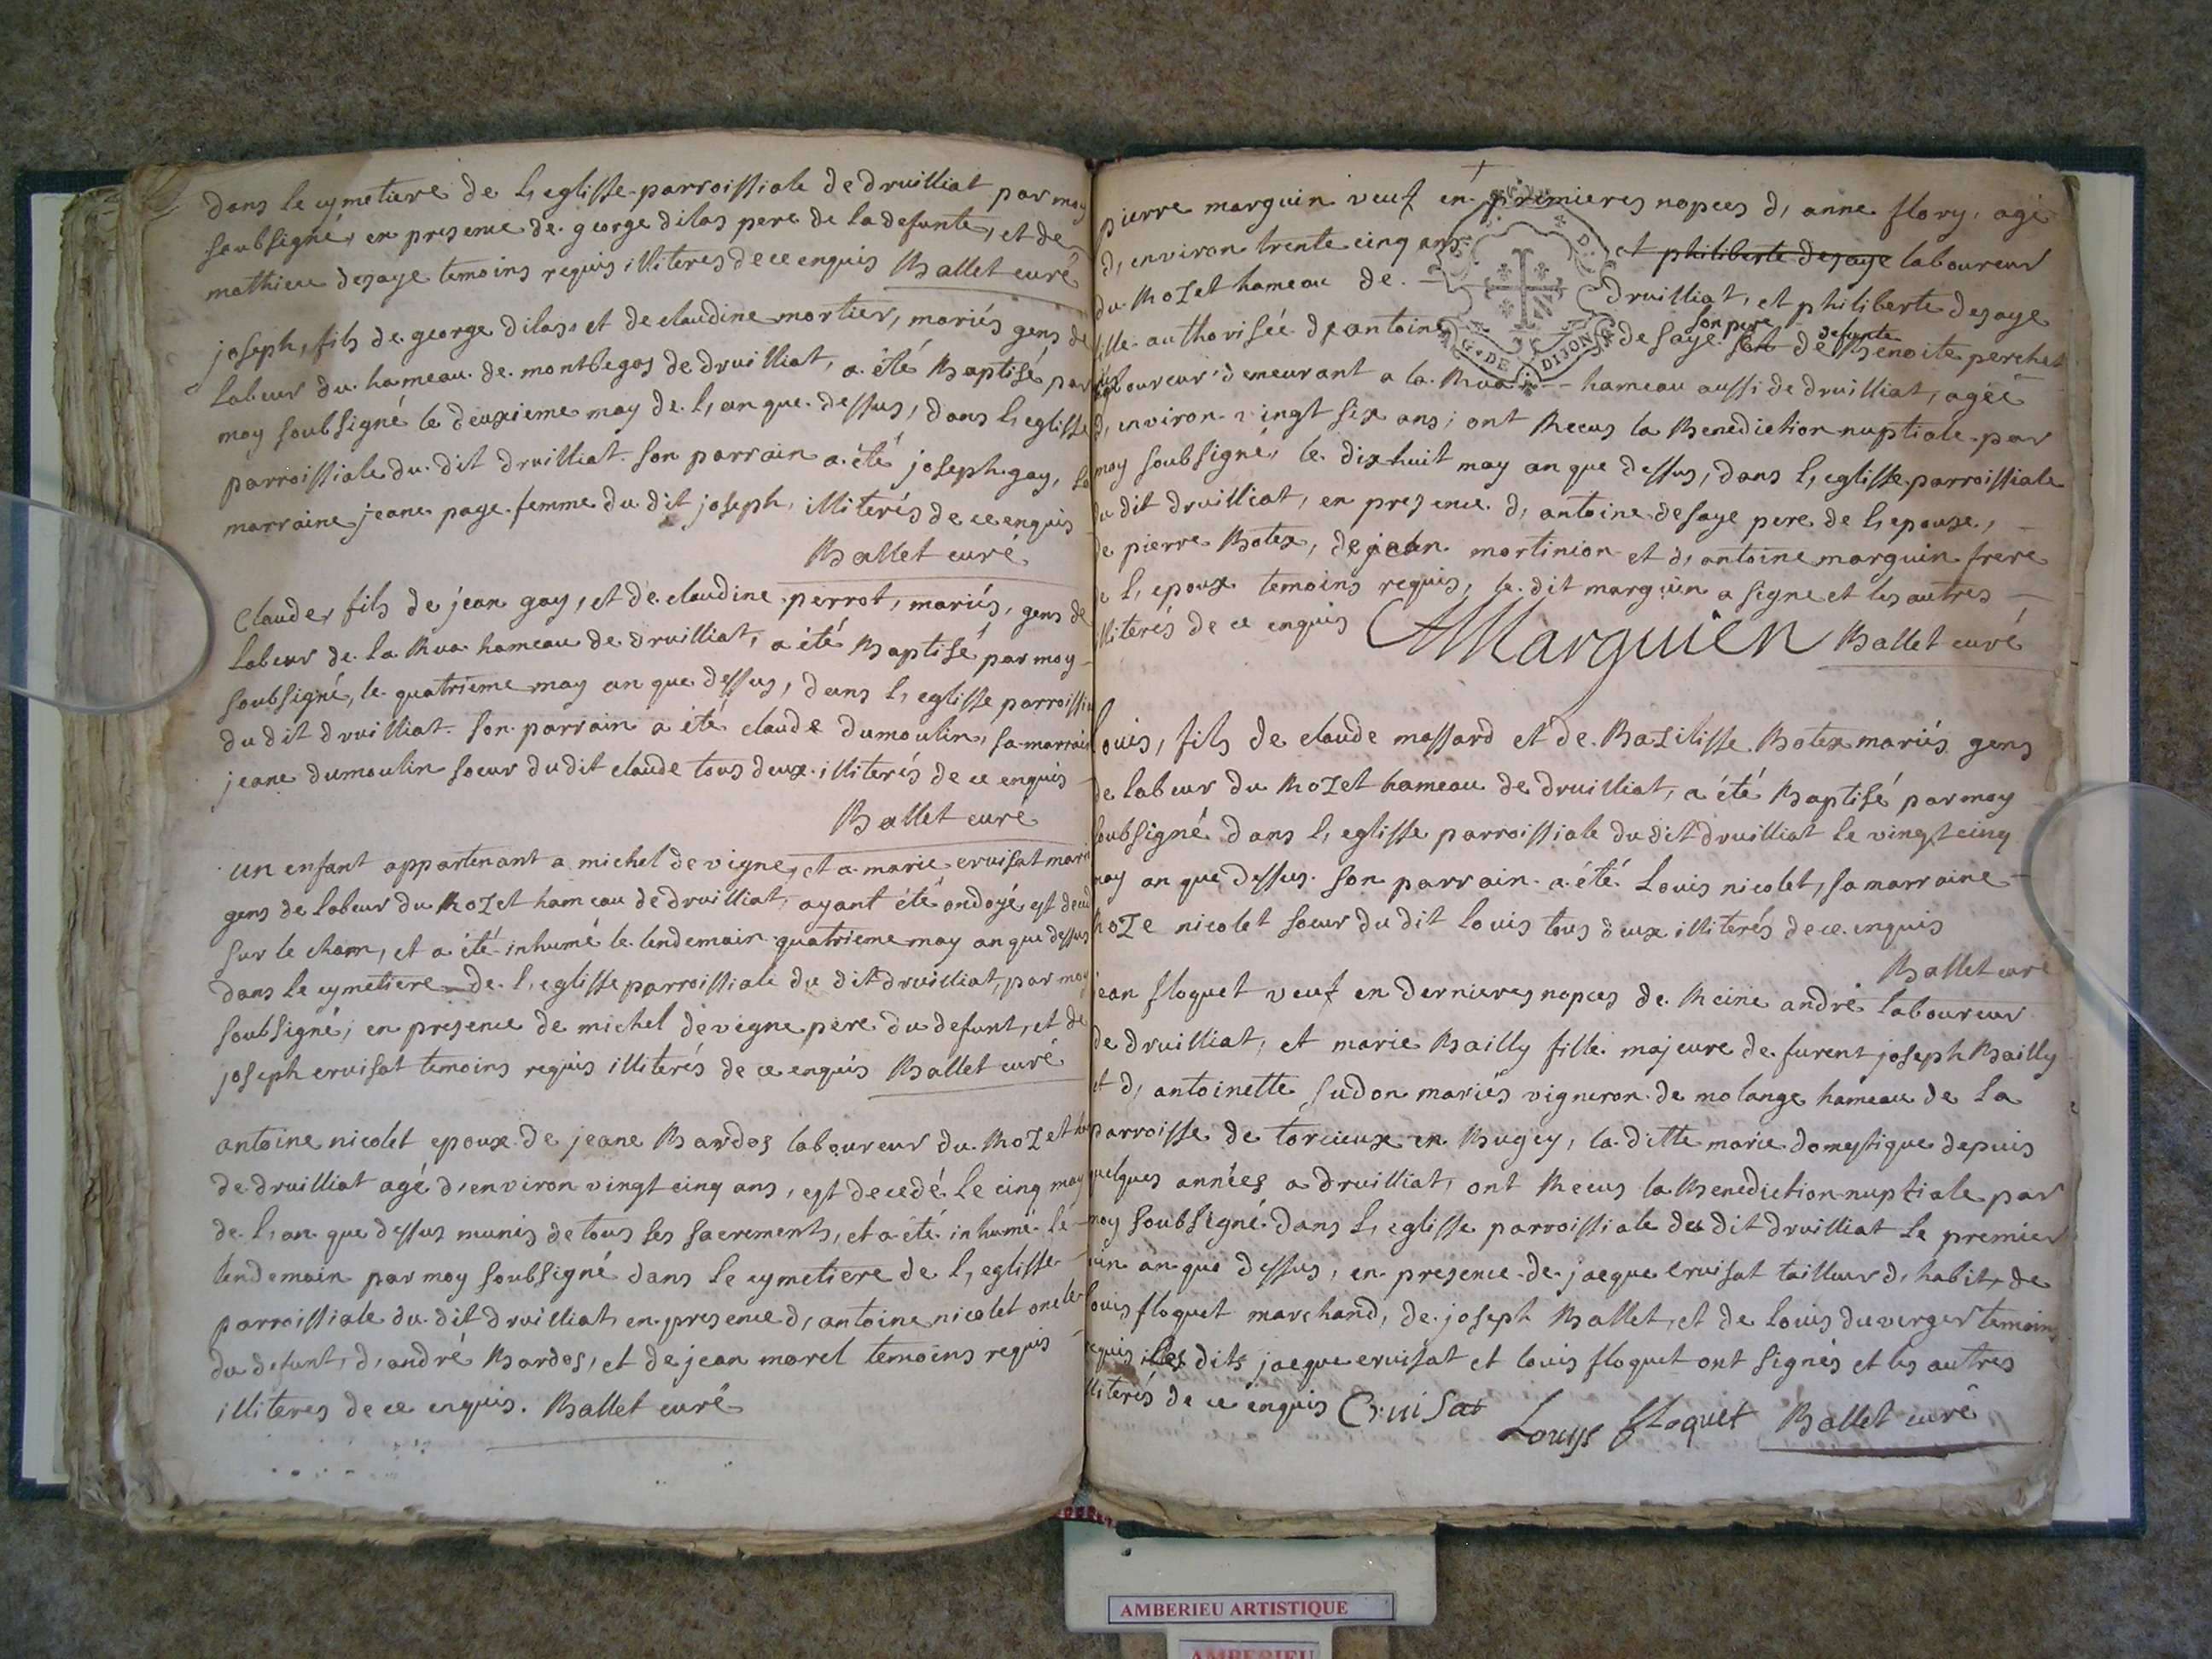 dans le cymetiere de l, eglisse parroissiale de druilliat par moy
soubsigné, en presence de george dilas pere de la defunte, et de
mathieu desaye temoins requis illiteres de ce enquis Ballet curé
joseph, fils de george dilas, et de claudine mortier, mariés gens de
labeur du hameau de montbegos de druilliat, a été Baptisé par
moy soubsigné le deuxieme may de l, an que dessus, dans l, eglisse
parroissiale du dit druilliat. son parrain a été joseph gay, sa
marraine jeane page femme du dit joseph, illiterés de ce enquis
Ballet curé
Claude, fils de jean gay, et de claudine perrot, mariés, gens de
labeur de la Rua hameau de druilliat, a été Baptisé par moy
soubsigné, le quatrieme may an que dessus, dans l, eglisse parroissia
du dit druilliat. son parrain a été claude dumoulin, sa marrain
jeane dumoulin soeur du dit claude tous deux illiterés de ce enquis
Ballet curé
un enfant appartenant a michel devigne, et a marie cruisat marié
gens de labeur du Rozet hameau de druilliat, ayant été ondoyé est deced
sur le cham, et a été inhumé le lendemain quatrieme may an que dessus
dans le cymetiere de l, eglisse parroissiale du dit druilliat, par moy
soubsigné, en presence de michel devigne pere du defunt, et de
joseph cruisat temoins requis illiterés de ce enquis Ballet curé
antoine nicolet epoux de jeane Bardos laboureur du Rozet ha
de druilliat agé d, environ vingt cinq ans, est decedé le cinq may
de l, an que dessus munis de tous ses sacrements, et a été inhumé le
lendemain par moy soubsigné dans le cymetiere de l, eglisse
parroissiale du dit druilliat, en presence d, antoine nicolet oncle
du defunt, d, andré Bardos, et de jean morel temoins requis
illiteres de ce enquis. Ballet curé
pierre marguin veuf en premieres nopces d, anne flory, agé
d, environ trente cinq ans et philiberte desaye laboureur
du Rozet hameau de druilliat, et philiberte desaye
fille authorisée d, antoine desaye son pere et de defunte Benoite perchet
laboureur demeurant a la Rua hameau aussi de druilliat, agée
d, environ vingt six ans; ont Recus la Benediction nuptiale par
moy soubsigné, le dixhuit may an que dessus, dans l, eglisse parroissiale
du dit druilliat, en presence d, antoine desaye pere de l, epouse,
de pierre Botex, de jean martinion et d, antoine marguin frere
de l, epoux temoins requis, le dit marguin a signe et les autres
illiterés de ce enquis AMarguien Ballet curé
G. DE DIJON
Louis, fils de claude massard et de Bazilisse Botex mariés gens
de labeur du Rozet hameau de druilliat, a été Baptisé par moy
soubsigné dans l, eglisse parroissiale du dit druilliat le vingt cinq
may an que dessus. son parrain a été Louis nicolet, sa marraine
Roze nicolet soeur du dit louis tous deux illiterés de ce enquis
Ballet curé
jean floquet veuf en dernieres nopces de Reine andré laboureur
de druilliat, et marie Bailly fille majeure de furent joseph Bailly
et d, antoinette sudon mariés vigneron de molange hameau de la
parroisse de torcieux en Bugey, la ditte marie domestique depuis
quelques années a druilliat, ont Recus la Benediction nuptiale par
moy soubsigné dans l, eglisse parroissiale du dit druilliat le premier
juin an que dessus, en presence de jacque cruisat tailleur d, habit, de
louis floquet marchand, de joseph Ballet, et de louis duverger temoins
requis les dits jacque cruisat et louis floquet ont signés et les autres
illiterés de ce enquis Cruisat Louys floquet Ballet curé
AMBERIEU ARTISTIQUE
AMBERIEU